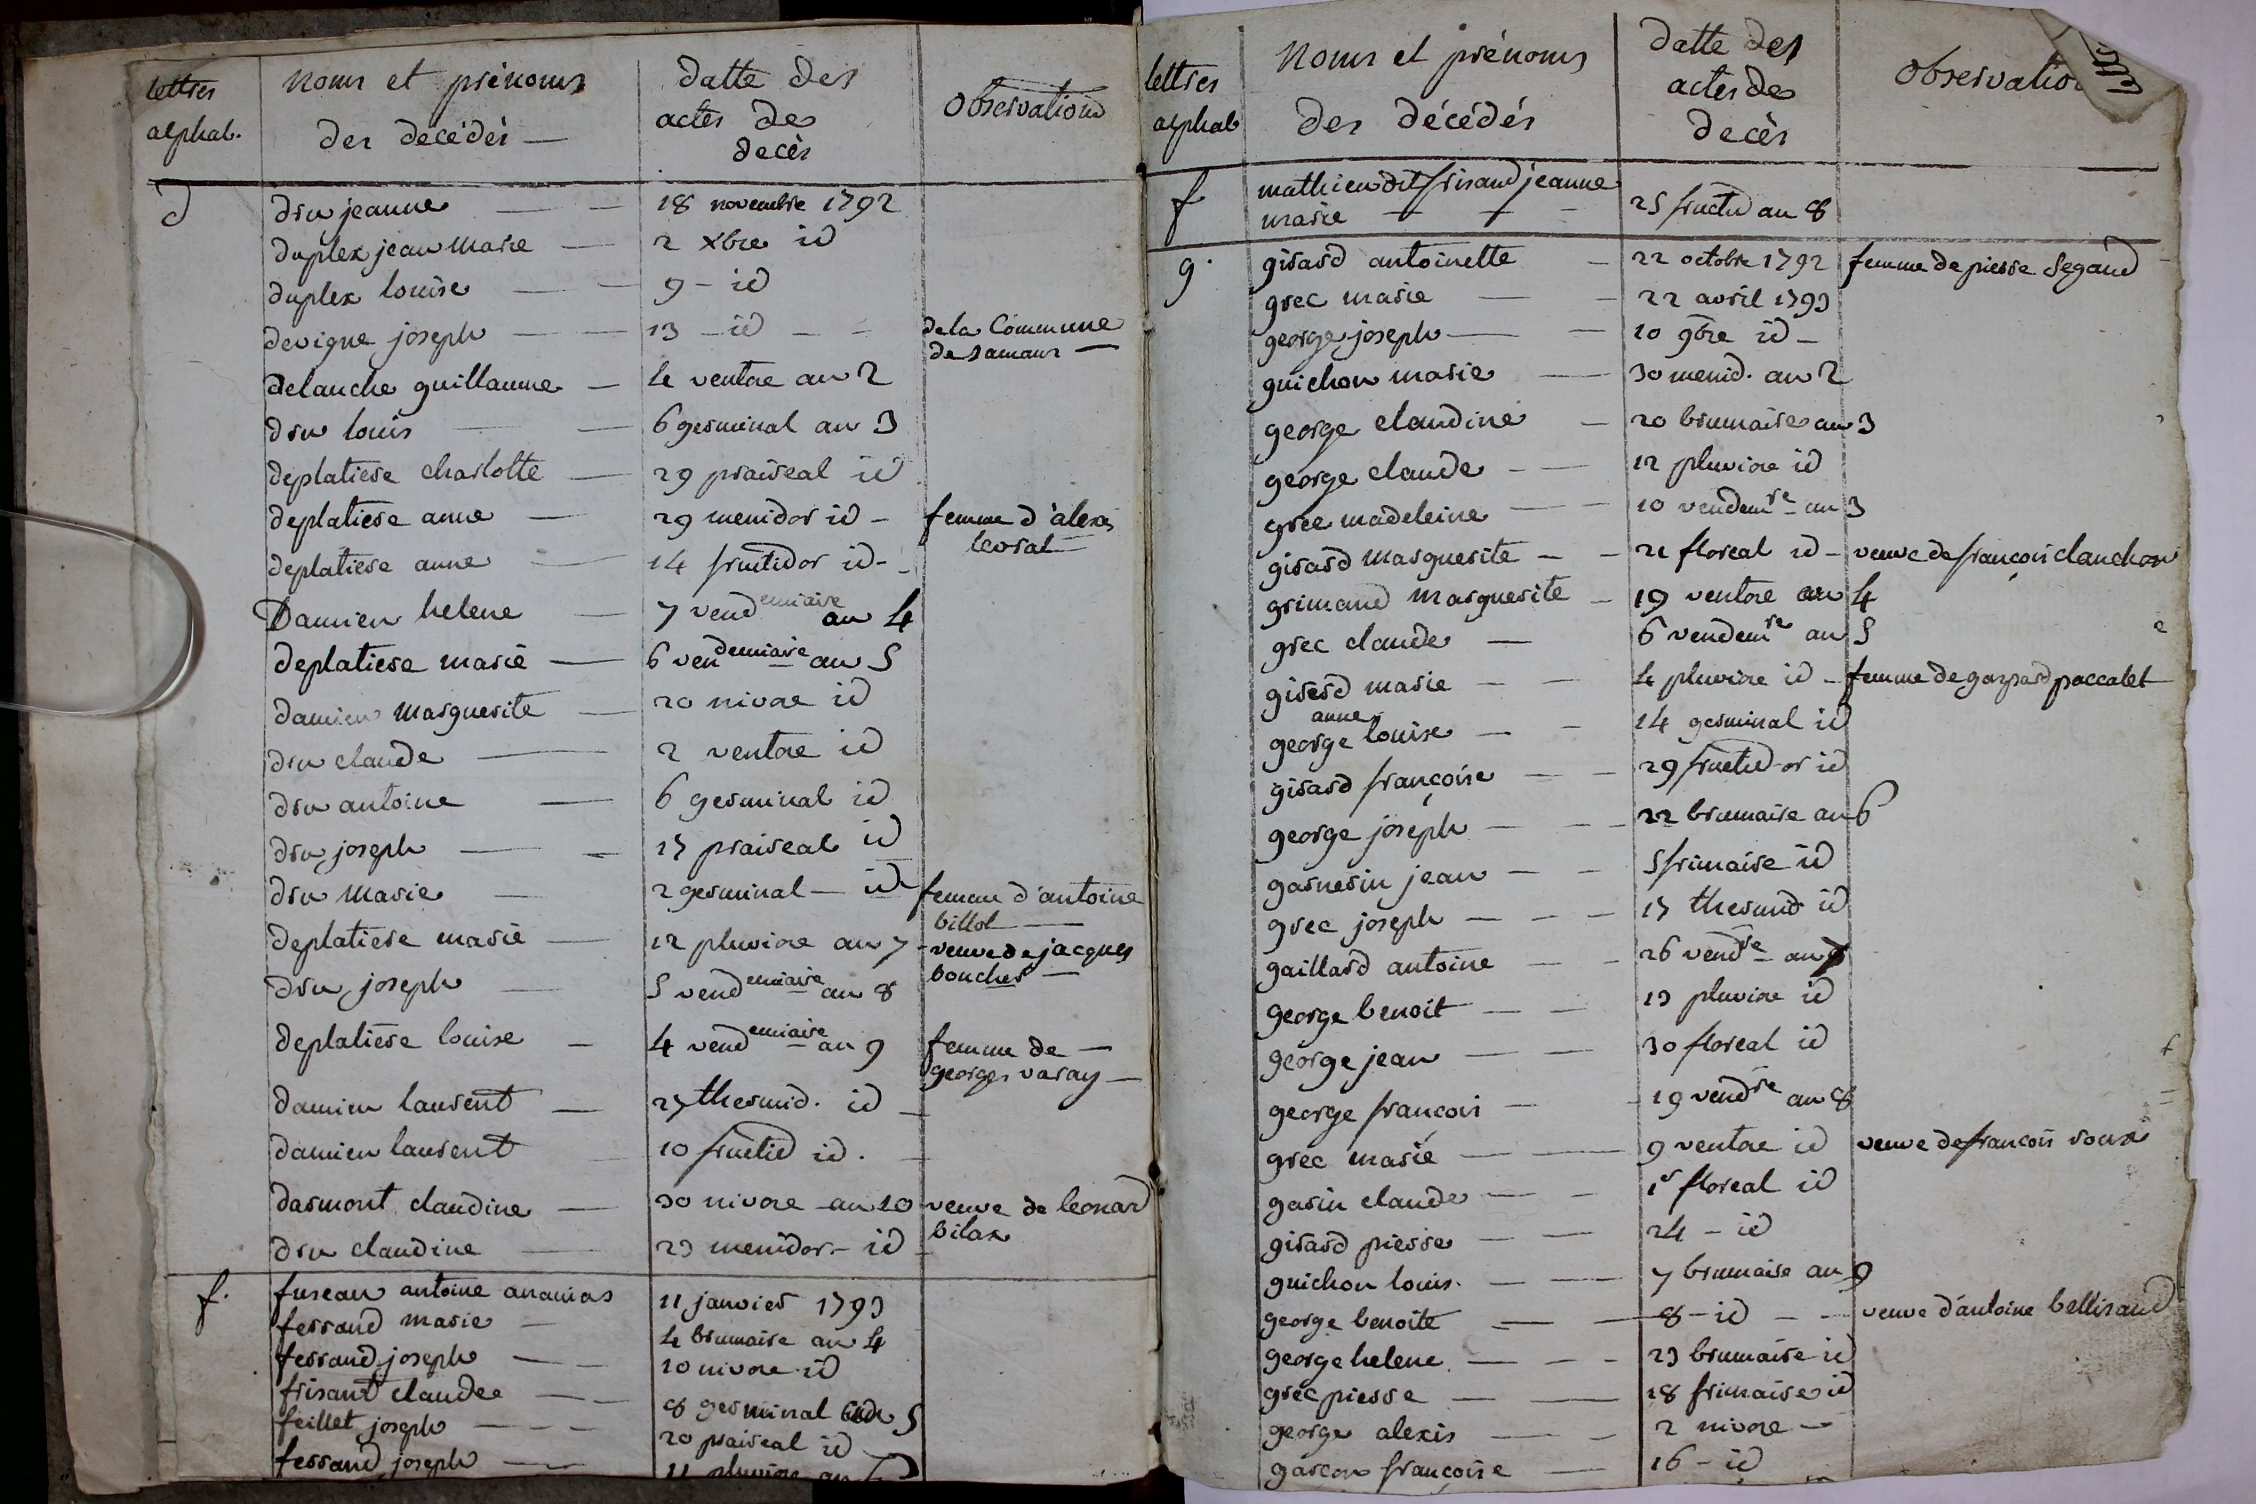 lettres alphab. noms et prénoms des decédés — datte des actes de decès observations
d dru jeanne — — 18 novembre 1792
duplex jean marie — 2 xbre id
duplex louise — — 9 - id
devigne joseph — — 13 - id - - de la Commune
de
delanche guillaume — 4 ventose an 2
dru louis — — 6 germinal an 3
deplatiere charlotte — 29 praireal id
deplatiere anne — 29 messidor id - femme d'alexis
levrat —
deplatiere anne — 14 fructidor id -
Damien helene — 7 vendemiaire an 4
deplatiere marie — 6 vendemiaire an 5
damien marguerite — 20 nivose id
dru claude — 2 ventose id
dru antoine — 6 germinal id
dru joseph — — 17 praireal id
dru marie — 2 germinal — id femme d'antoine
billot —
deplatiere marie — 12 pluviose an 7 - veuve de jacques
boucher —
dru joseph — 5 vendemiaire an 8
deplatiere louise — 4 vendemiaire an 9 femme de —
georges varay —
damien laurent — 27 thermid. id -
damien laurent 10 fructid id. -
darmont claudine — 30 nivose an 10 veuve de leonard
bilax
dru claudine — 23 messidor - id -
f. fuseau antoine ananias 11 janvier 1793
ferraud marie — 4 brumaire an 4
ferraud joseph — — 10 nivose id
frisant claude — — 8 germinal an 5
feillet joseph — - - 20 praireal id
ferraud joseph — 11 pluviose an
lettres alphab noms et prénoms des décédés datte des actes de decès observation
f mathieu dit frisaud jeanne
marie — — - 25 fructid an 8
g. girard antoinette - 22 octobre 1792 femme de pierre segaud
grec marie — - 22 avril 1793
george joseph — — 10 9bre id -
guichon marie — 30 messid. an 2
george claudine - 20 brumaire an 3
george claude - — 12 pluviose id
grec madeleine — — 10 vendemre an 3
girard marguerite - - 21 floreal id - veuve de françois clanchon
grimaud marguerite - 19 ventose an 4
grec claude — 6 vendemre an 5
girerd marie - - 4 pluviose id - femme de gaspard paccalet
george anne louise - - 14 germinal id
girard françoise - - 29 fructid-or id
george joseph - - 22 brumaire an 6
garnerin jean - - 5 frimaire id
grec joseph - - - 17 thermid id
gaillard antoine - - 26 vendre an 7
george benoit - - 13 pluviose id
george jean — — 30 floreal id
george françois - - 19 vendre an 8
grec marie — — 9 ventose id veuve de françois roux
garin claude - - 1r floreal id
girard pierre - — 24 - id
guichon louis. - — 7 brumaire an 9
george benoite — — 8 - id - - veuve d'antoine bellisaud
george helene — - - 23 brumaire id
grec pierre — — 18 frimaire id
george alexis — - 2 nivose —
garçon françoise — 16 - id